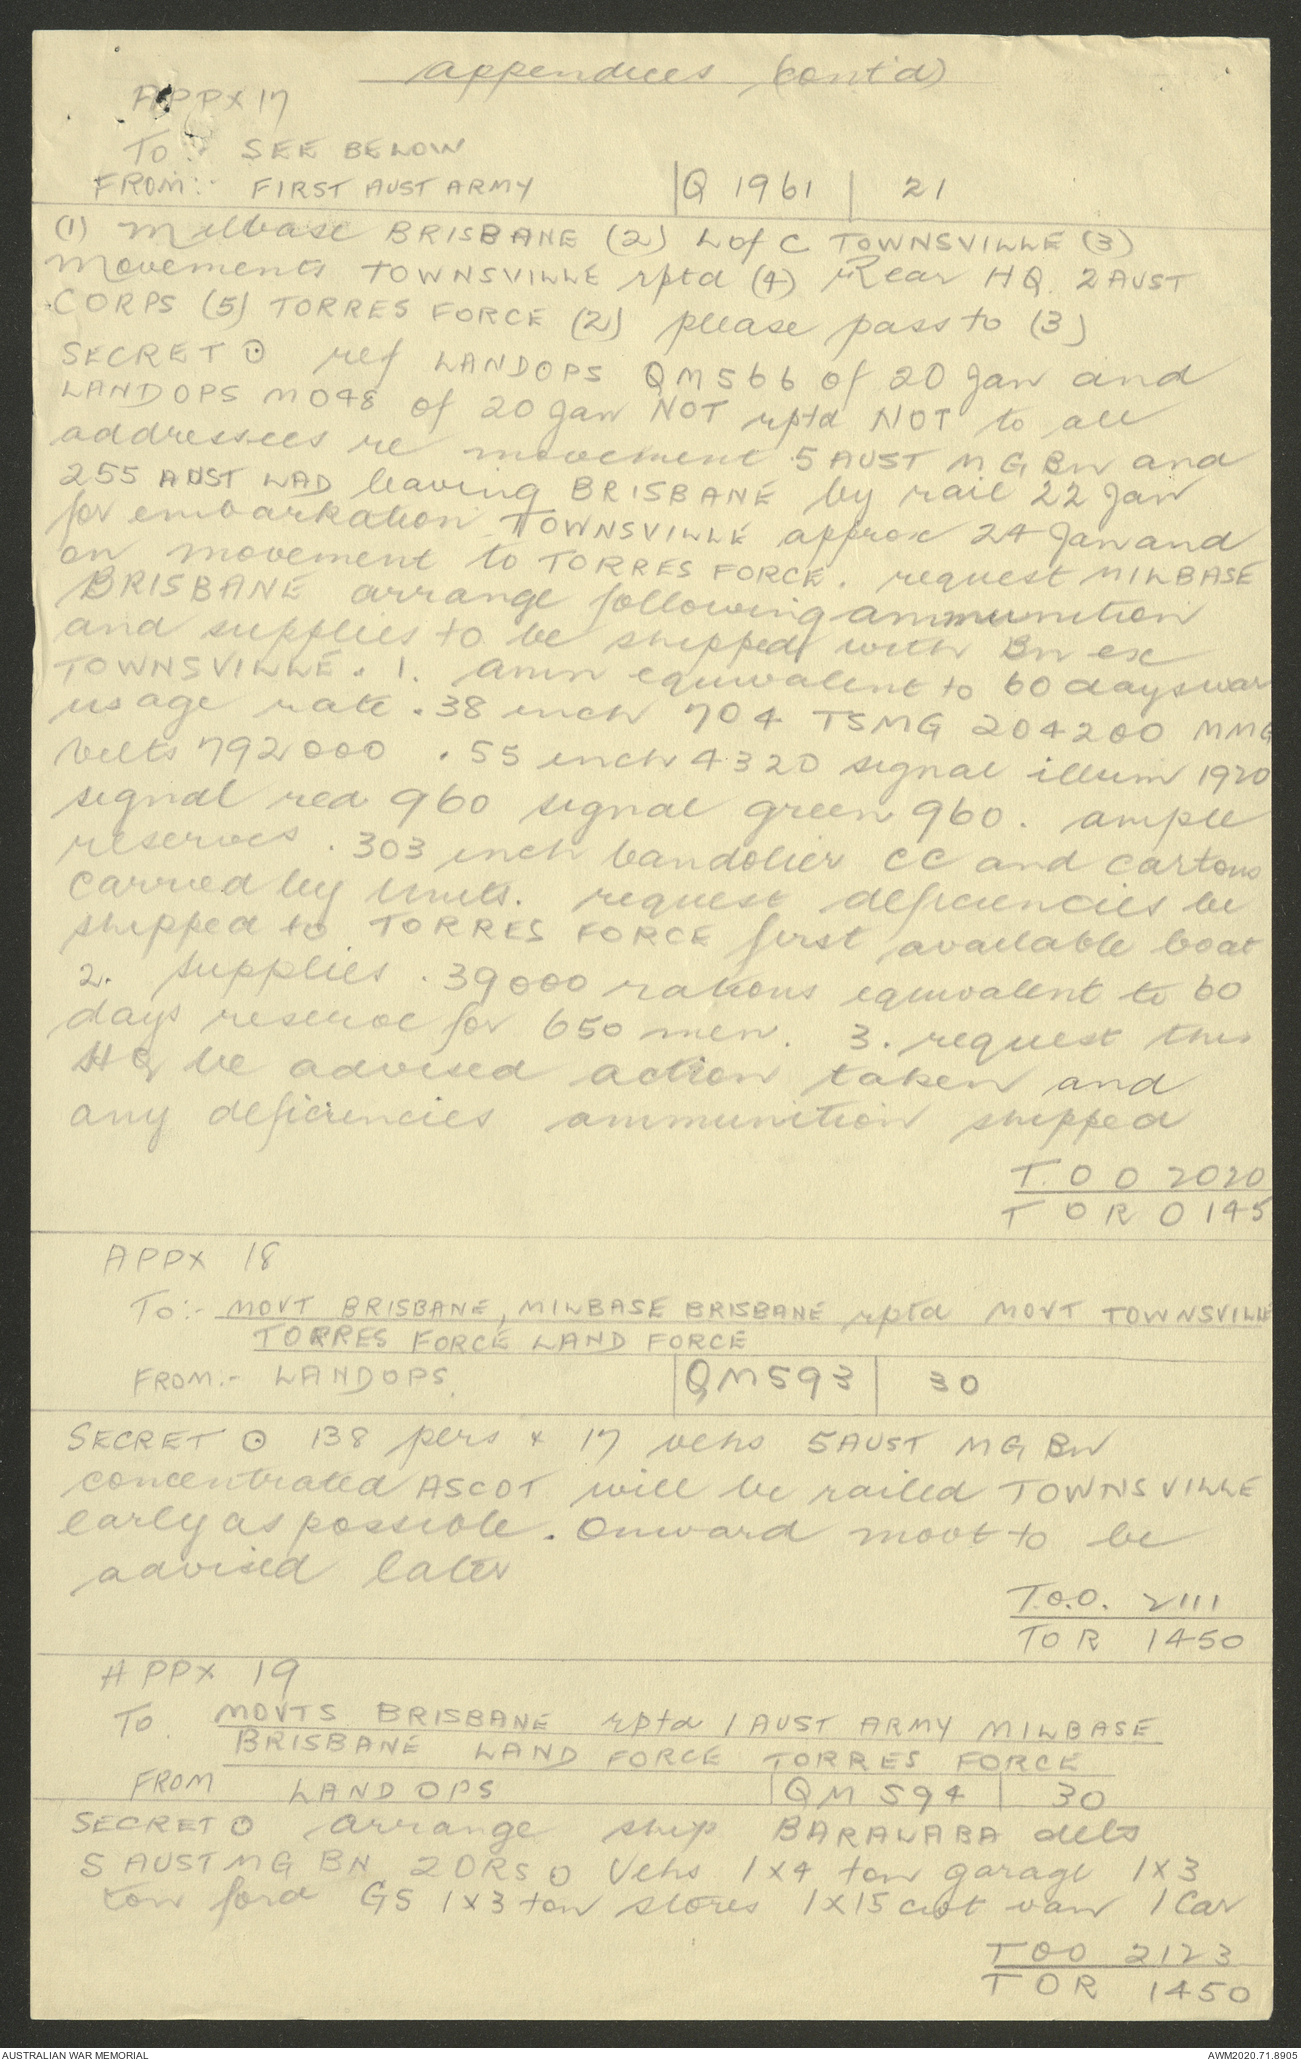 appendices (cont'd)
APPX 17
To:- SEE BELOW
FROM:- FIRST AUST ARMY Q 1961 21
(1) Milbase BRISBANE (2) L of C TOWNSVILLE (3)
Movements TOWNSVILLE rptd (4) Rear HQ. 2 AUST
CORPS (5) TORRES FORCE (2) please pass to (3)
SECRET ⊙ ref LANDOPS QM566 of 20 Jan and
LANDOPS MO48 of 20 Jan NOT rptd NOT to all
addressees re movement 5 AUST MG Bn and
255 AUST LAD leaving BRISBANE by rail 22 Jan
for embarkation TOWNSVILLE approx 24 Jan and
on movement to TORRES FORCE. request MILBASE
BRISBANE arrange following ammunition
and supplies to be shipped with Bn ex
TOWNSVILLE. 1. amn equivalent to 60 days war
usage rate .38 inch 704 TSMG 204200 MMG
belts 792000 .55 inch 4320 signal illum 1920
signal red 960 signal green 960. ample
reserves .303 inch bandolier CC and cartons
carried by units. request deficiencies be
shipped to TORRES FORCE first available boat
2. supplies. 39000 rations equivalent to 60
days reserve for 650 men. 3. request this
HQ be advised action taken and
any deficiencies ammunition shipped
T.O O 2020
T O R 0145
APPX 18
To:- MOVT BRISBANE, MILBASE BRISBANE rptd MOVT TOWNSVILLE
TORRES FORCE LAND FORCE
FROM:- LANDOPS. QM593 30
SECRET ⊙ 138 pers + 17 vehs 5 AUST MG BN
concentrated ASCOT will be railed TOWNSVILLE
early as possible. Onward movt to be
advised later
T.O.O. 2111
TOR 1450
APPX 19
To MOVTS BRISBANE rptd 1 AUST ARMY MILBASE
BRISBANE LAND FORCE TORRES FORCE
FROM LAND OPS QM 594 30
SECRET ⊙ arrange ship BARALABA dets
5 AUST MG BN 2 ORS ⊙ Vehs 1 x 4 ton garage 1 X 3
ton ford GS 1 x 3 ton stores 1 X 15 cwt van 1 Car
TOO 2123
TOR 1450
AUSTRALIAN WAR MEMORIAL AWM2020.71.8905